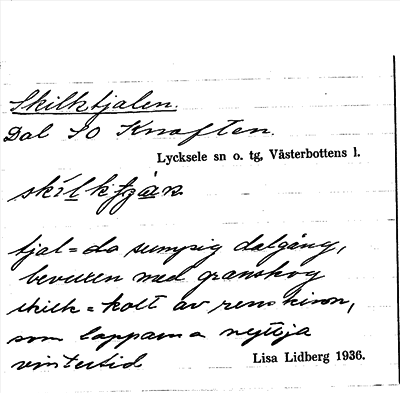 Skilktjalen.
Dal SO Knaften.
Lycksele sn o. tg, Västerbottens l.
tjal = do sumpig dalgång,
bevuxen med granskog
skilk = kolt av renskinn,
som lapparna nyttja
vintertid
Lisa Lidberg 1936.